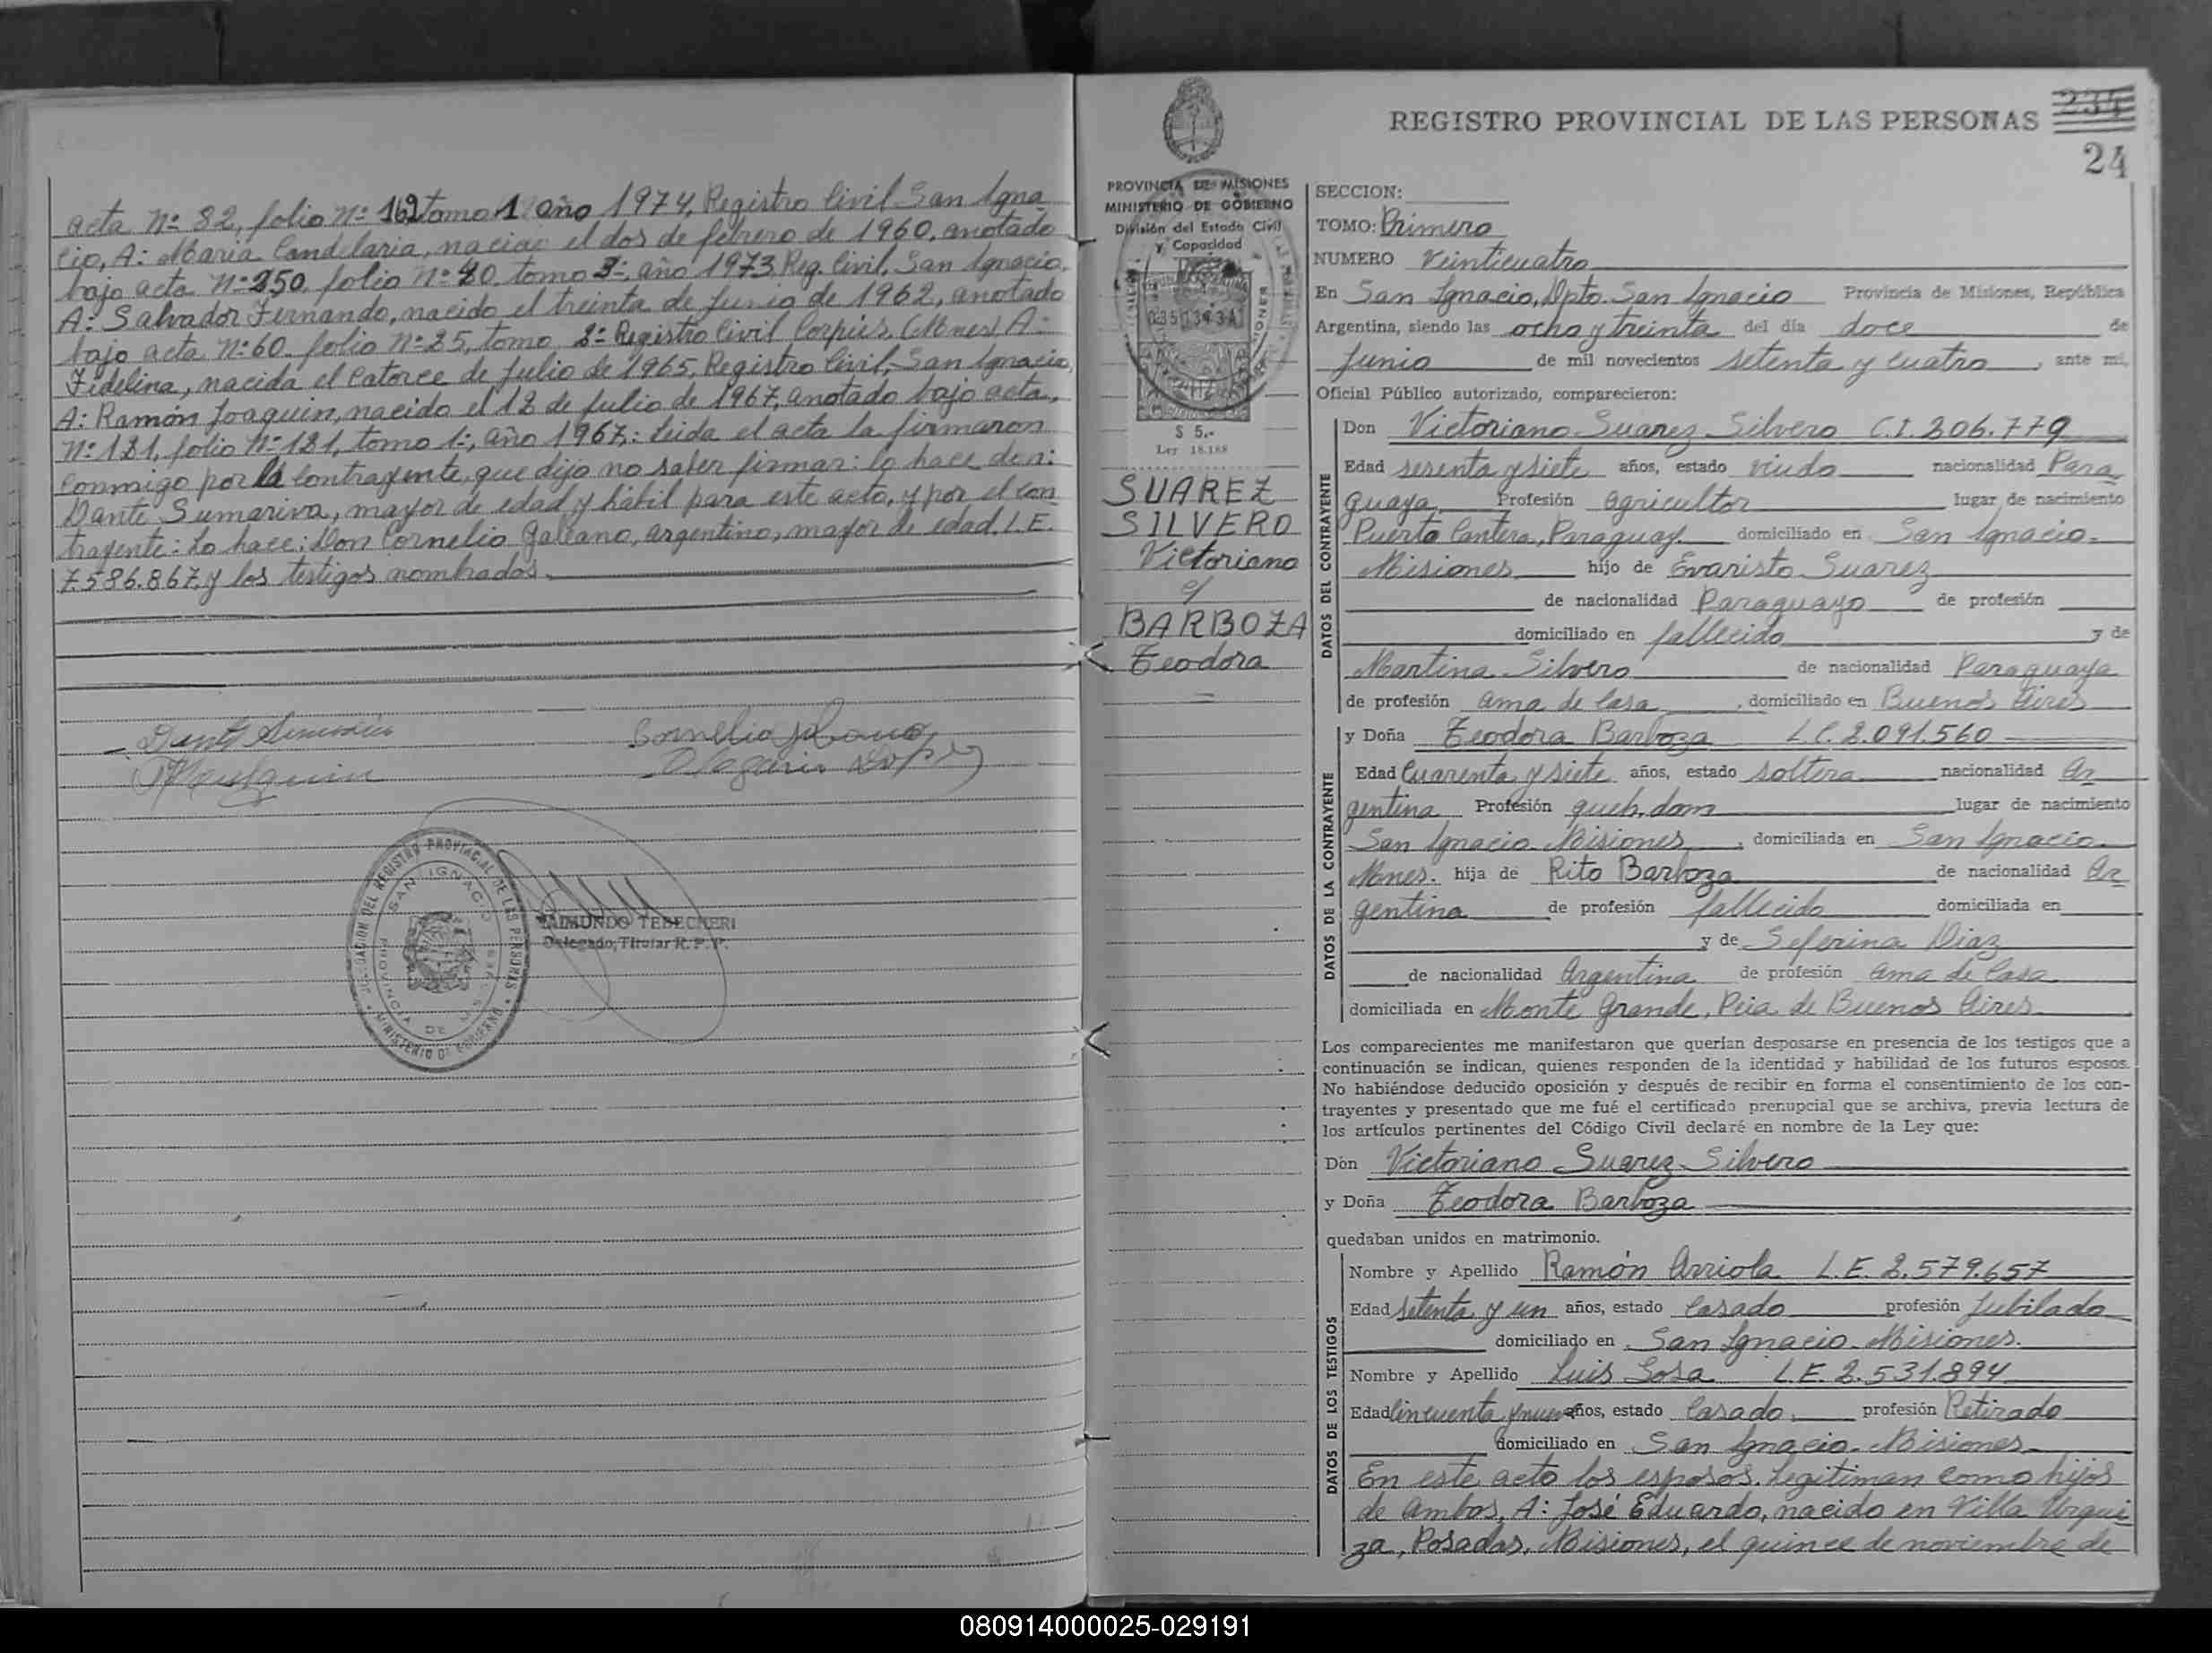 acta Nº 82, folio Nº 162 tomo 1 año 1974, Registro Civil San Igna
cio, A: Maria Candelaria, nacida el dos de febrero de 1960, anotado
bajo acta Nº 250, folio Nº 20 tomo 3º, año 1973 Reg. Civil, San Ignacio,
A: Salvador Fernando, nacido el treinta de junio de 1962, anotado
bajo acta Nº 60 folio Nº 25, tomo 2º Registro Civil Corpus, (Mnes) A:
Fidelina, nacida el Catorce de julio de 1965, Registro Civil, San Ignacio,
A: Ramón Joaquin, nacido el 18 de julio de 1967, anotado bajo acta,
Nº 121, folio Nº 121, tomo 1º, año 1967,: Leida el acta la firmaron
Conmigo por la Contrayente, que dijo no saber firmar: lo hace don:
Dante Sumariva, mayor de edad y hábil para este acto, y por el con
trayente: Lo hace: Don Cornelio Galeano, argentino, mayor de edad, L.E.
7.586.867, y los testigos nombrados.
JUZGACION DEL REGISTRO PROVINCIAL DE LAS PERSONAS
SAN IGNACIO
PROVINCIA DE MISIONES
MINISTERIO DE GOBIERNO
RAIMUNDO TEBECHERI
Delegado Titular R. P. P.
REGISTRO PROVINCIAL DE LAS PERSONAS 234
24
PROVINCIA DE MISIONES
MINISTERIO DE GOBIERNO
División del Estado Civil
y Capacidad
$ 5.-
Ley 18.188
SUAREZ
SILVERO
Victoriano
c/
BARBOZA
Teodora
SECCION:
TOMO: Primero
NUMERO Veinticuatro
En San Ignacio, Dpto. San Ignacio Provincia de Misiones, República
Argentina, siendo las ocho y treinta del día doce de
Junio de mil novecientos setenta y cuatro, ante mi,
Oficial Público autorizado, comparecieron:
DATOS DEL CONTRAYENTE
Don Victoriano Suarez Silvero C.I. 206.779
Edad sesenta y siete años, estado viudo nacionalidad Para
guaya Profesión agricultor lugar de nacimiento
Puerto Cantera, Paraguay. domiciliado en San Ignacio-
Misiones hijo de Evaristo Suarez
de nacionalidad Paraguayo de profesión
domiciliado en fallecido y de
Martina Silvero de nacionalidad Paraguaya
de profesión ama de Casa, domiciliado en Buenos Aires
DATOS DE LA CONTRAYENTE
y Doña Teodora Barboza L.C. 2.091.560
Edad Cuarenta y siete años, estado soltera nacionalidad Ar
gentina Profesión queh. dom lugar de nacimiento
San Ignacio Misiones, domiciliada en San Ignacio.
Mnes. hija de Rito Barboza de nacionalidad Ar
gentina de profesión fallecido domiciliada en
y de Seferina Diaz
de nacionalidad Argentina de profesión ama de Casa
domiciliada en Monte Grande, Pcia de Buenos Aires.
Los comparecientes me manifestaron que querían desposarse en presencia de los testigos que a
continuación se indican, quienes responden de la identidad y habilidad de los futuros esposos.
No habiéndose deducido oposición y después de recibir en forma el consentimiento de los con-
trayentes y presentado que me fué el certificado prenupcial que se archiva, previa lectura de
los artículos pertinentes del Código Civil declaré en nombre de la Ley que:
Don Victoriano Suarez Silvero
y Doña Teodora Barboza
quedaban unidos en matrimonio.
DATOS DE LOS TESTIGOS
Nombre y Apellido Ramón Arriola L.E. 2.579.657
Edad setenta y un años, estado Casado profesión Jubilado
domiciliado en San Ignacio Misiones.
Nombre y Apellido Luis Sosa L.E. 2.531.894
Edad Cincuenta y nueve años, estado Casado profesión Retirado
domiciliado en San Ignacio. Misiones
En este acto los esposos. Legitiman como hijos
de ambos, A: José Eduardo, nacido en Villa Urqui
za, Posadas, Misiones, el quince de noviembre de
080914000025-029191